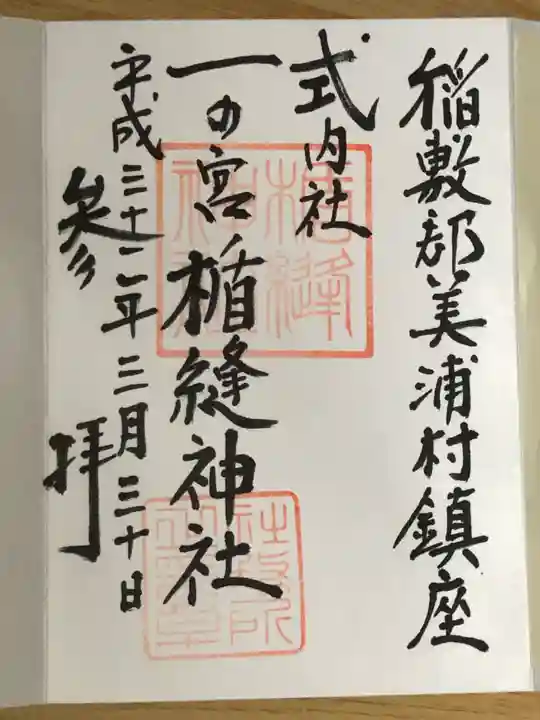 稲敷郡美浦村鎮座
式内社
一の宮楯縫神社
平成三十二年三月三十日
参拝
楯縫
神社
社務所